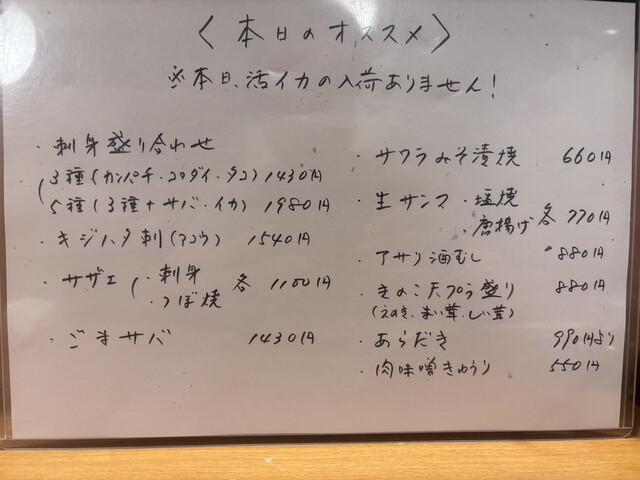 〈本日のオススメ〉
※本日、活イカの入荷ありません!
・刺身盛り合わせ
3種(カンパチ・コロダイ・タコ) 1430円
5種(3種+サバ・イカ) 1980円
・キジハタ刺(アコウ) 1540円
・サザエ(・刺身 各 1100円
・つぼ焼
・ごまサバ 1430円
・サワラみそ漬焼 660円
・生サンマ・塩焼
・唐揚げ 各 770円
・アサリ酒むし 880円
・きのこ天プラ盛り 880円
(えのき、まい茸、しい茸)
・あらだき 990円より
・肉味噌きゅうり 550円